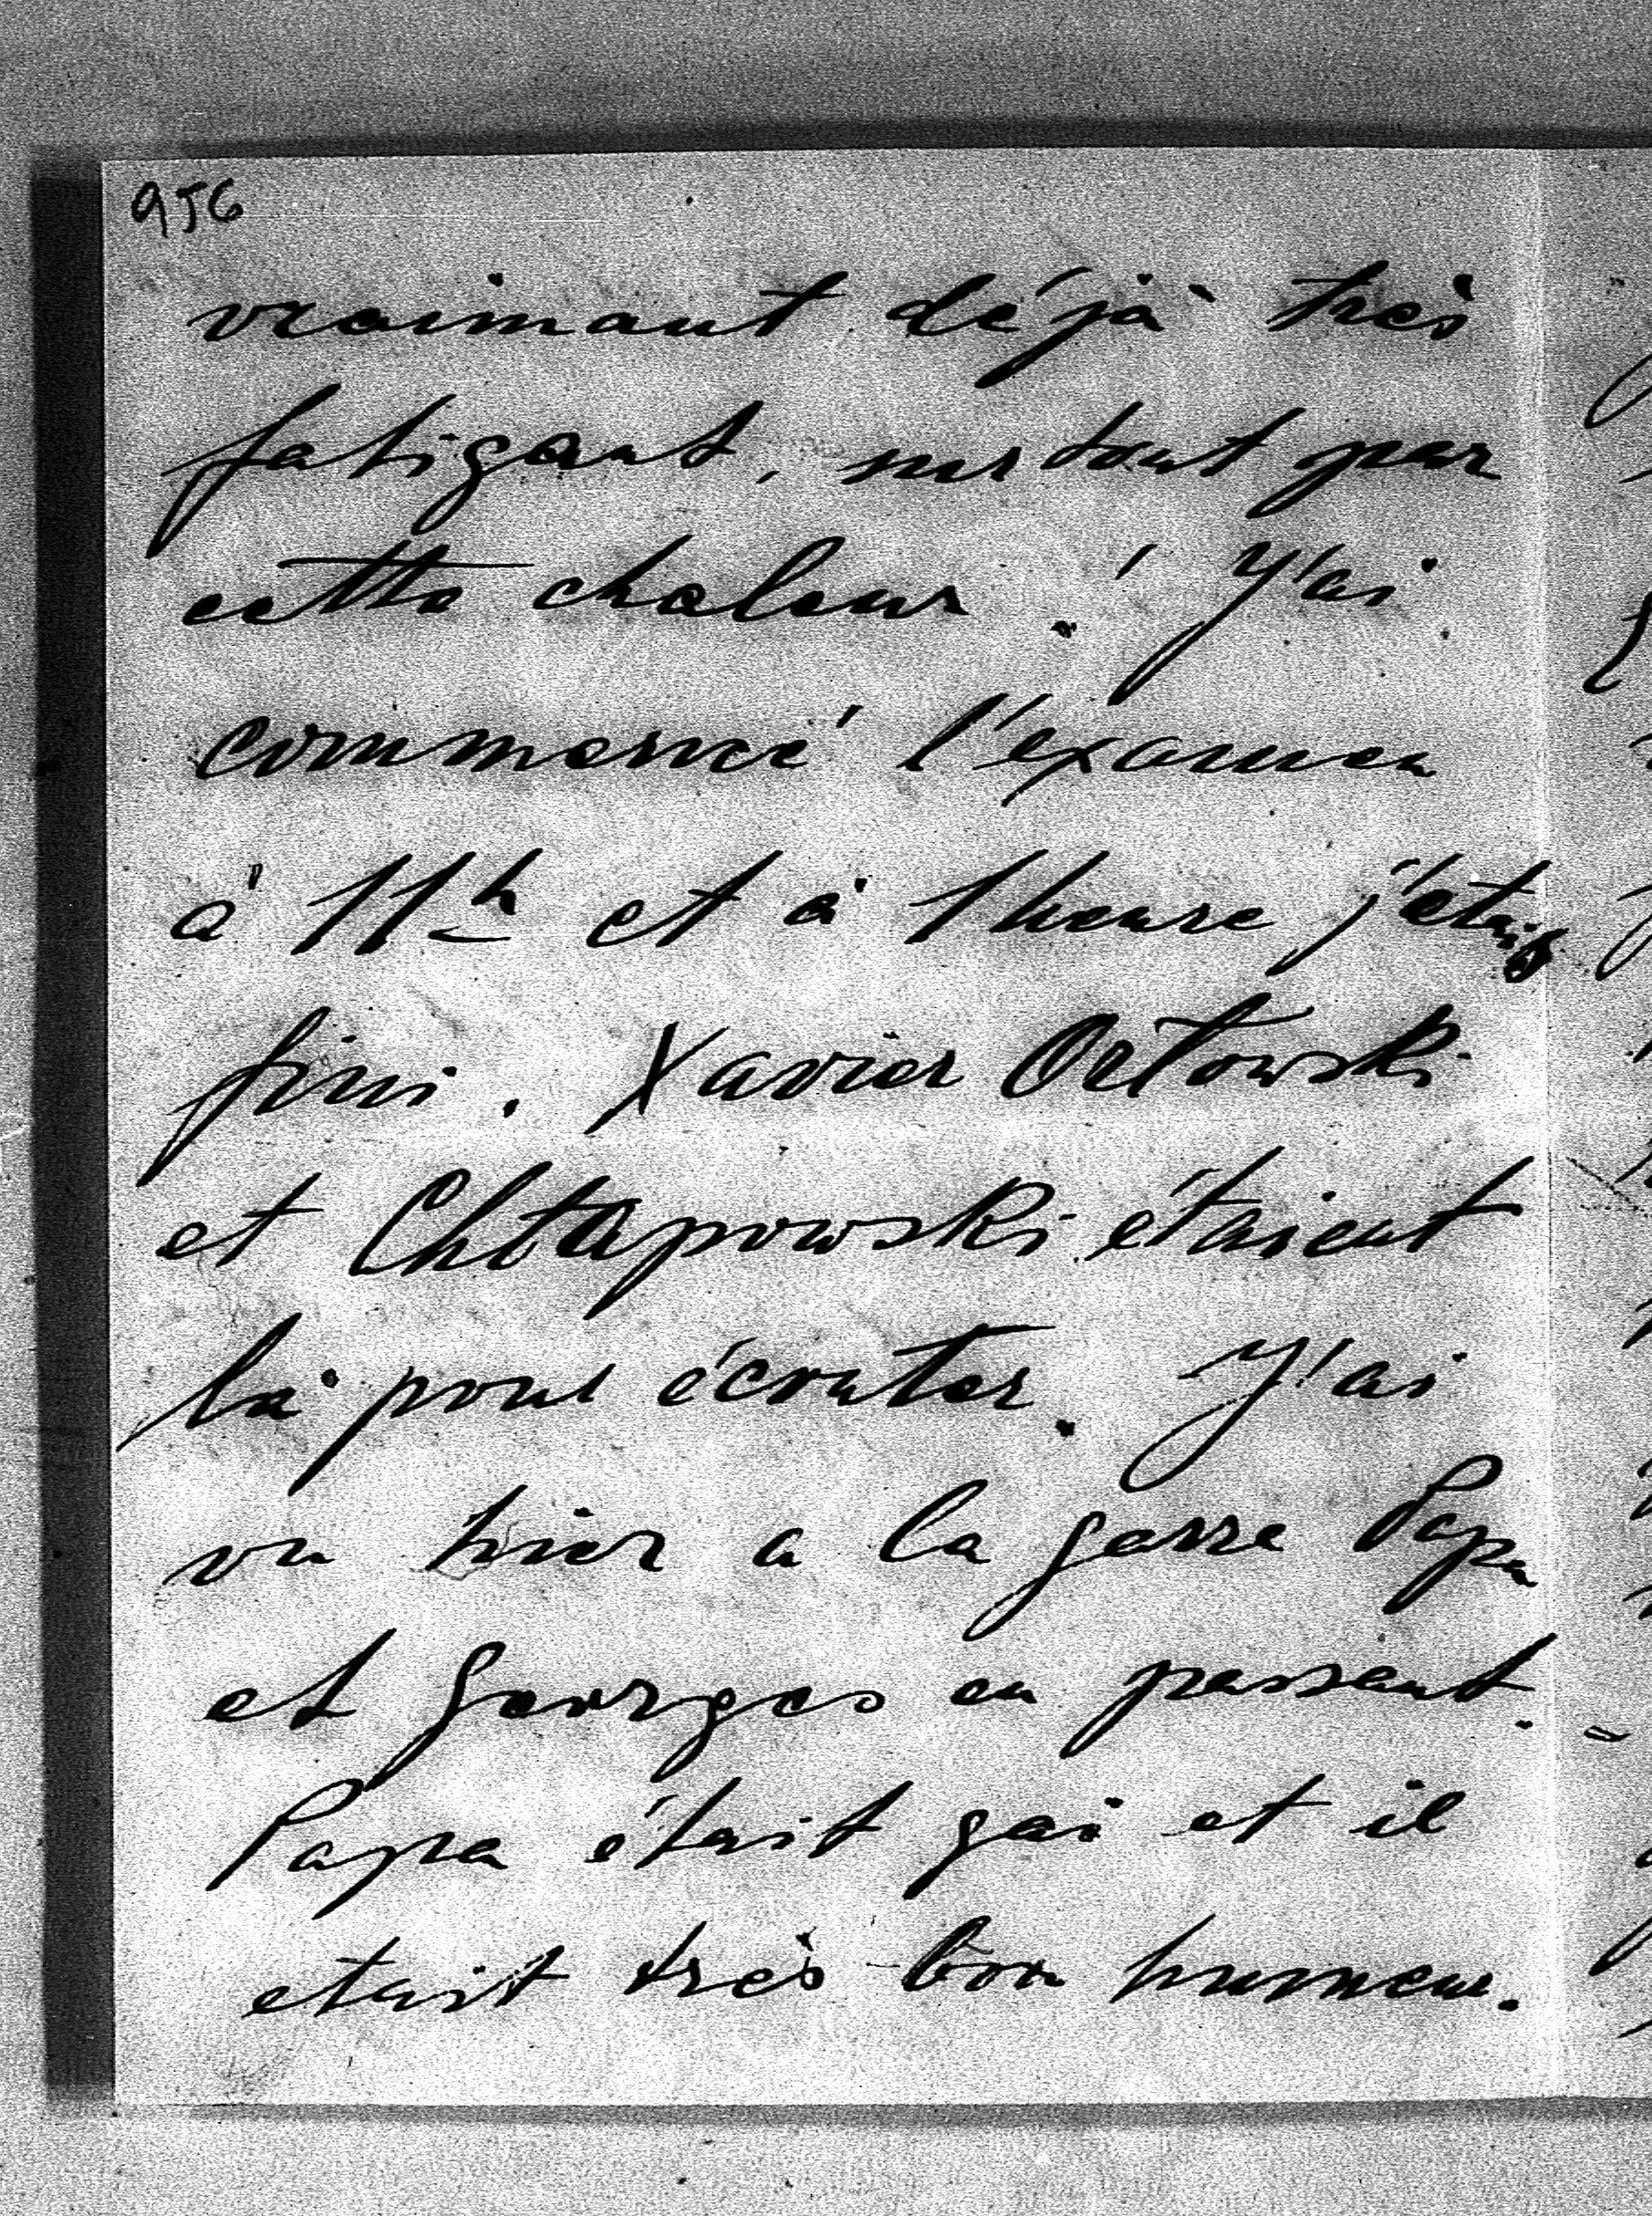 956
vraimant déjà très
fatigant, surtout par
cette chaleur! J'ai
commencé l'éxamen
à 11h et à 1 heure j'étais
fini. Xavier Orłowski
et Chłapowski étaient
là pour écouter. J'ai
vu hier a la garre Papa
et Georges en passant.
Papa était gai et il
etait très bon humeur.